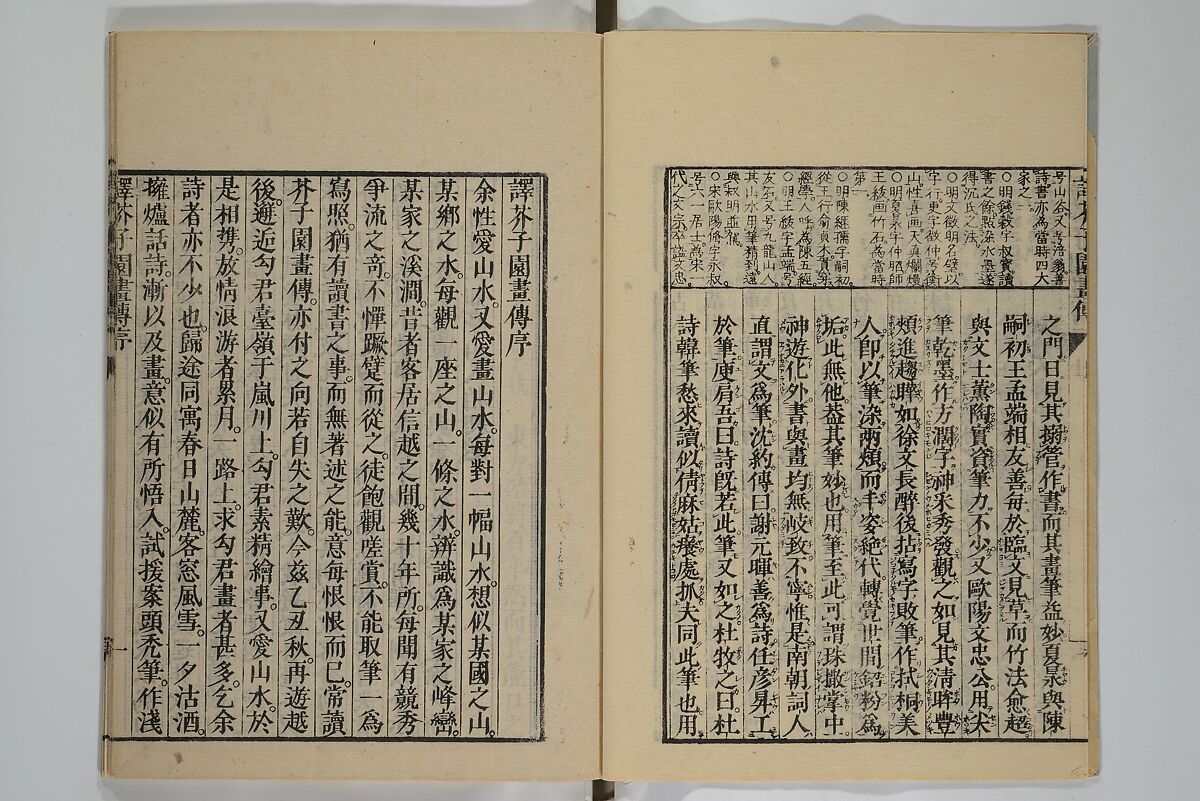 号山谷又号涪翁善
詩書亦為當時四大
家之一
○明錢穀字叔寶讀
書之餘點染水墨遂
得沈氏之法
○明文徵明名壁以
字行更字徵仲号衡
山性喜画天真爛熳
○明夏㫤字仲昭師
王紱画竹石為當時
第一
○明陳繼孺字嗣初
從王行俞貞木肆
經學人呼為陳五經
○明王紱字孟端号
友石又号九龍山人
其山水用筆精到遠
與叔明並稱
○宋歐陽脩字永叔
号六一居士為宋一
代之文宗卒謚文忠
之門日見其搦管作書而其畫筆益妙夏㫤與陳
嗣初王孟端相友善每於臨文見草而竹法愈超
與文士薰陶實資筆力不少又歐陽文忠公用尖
筆乾墨作方濶字神采秀發觀之如見其清眸豐
頰進趨曄如徐文長醉後拈寫字敗筆作拭桐美
人即以筆染兩頰而丰姿絶代轉覺世間鉛粉為
垢此無他葢其筆妙也用筆至此可謂珠撒掌中
神遊化外書與畫均無岐致不寧惟是南朝詞人
直謂文為筆沈約傳曰謝元暉善為詩任彦昇工
於筆庾肩吾曰詩既若此筆又如之杜牧之曰杜
詩韓筆愁來讀似倩麻姑癢處抓夫同此筆也用
譯芥子園畫傳序
余性愛山水。又愛畫山水。每對一幅山水。想似某國之山。
某鄉之水。每觀一座之山。一條之水。辨識為某家之峰巒。
某家之溪澗。昔者客居信越之間。幾十年所。每聞有競秀
爭流之奇。不憚蹶躄而從之。徒飽觀嗟賞。不能取筆一為
寫照。猶有讀書之事。而無著述之能。意每恨恨而已。常讀
芥子園畫傳。亦付之向若自失之歎。今玆乙丑秋。再遊越
後。邂逅勾君臺嶺于嵐川上。勾君素精繪事。又愛山水。於
是相携。放情浪游者累月。一路上。求勾君畫者甚多。乞余
詩者亦不少也。歸途同寓春日山麓。客窓風雪。一夕沽酒。
擁爐話詩。漸以及畫。意似有所悟入。試援案頭禿筆。作淺
譯芥子園畫傳序
一